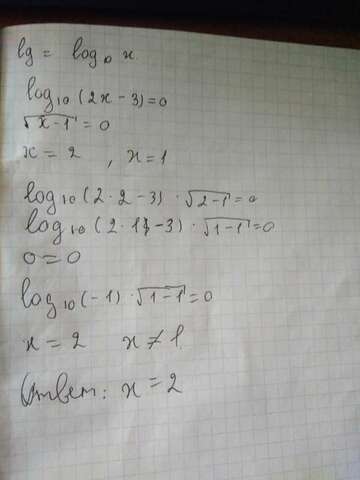 lg = log₁₀ x
log₁₀ (2x - 3) = 0
√x - 1 = 0
x = 2 , x = 1
log₁₀ (2 · 2 - 3) · √2 - 1 = 0
log₁₀ (2 · 1 - 3) · √1 - 1 = 0
0 = 0
log₁₀ (-1) · √1 - 1 = 0
x = 2 x ≠ 1
Ответ: x = 2